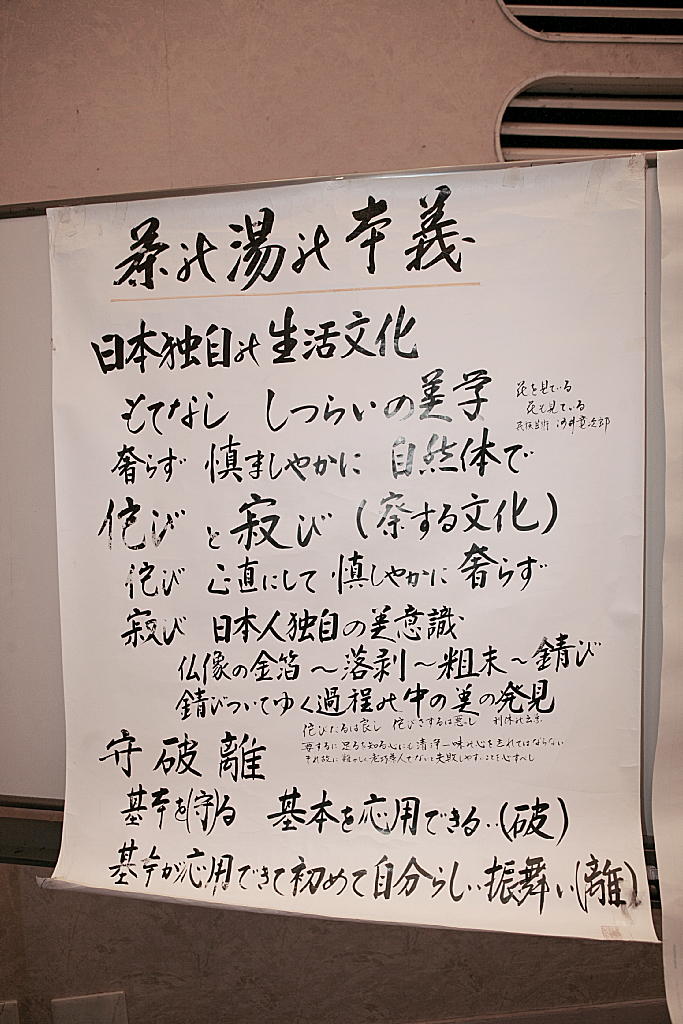 茶の湯の本義
日本独自の生活文化
もてなし しつらいの美学
花を見ている
花も見ている
河井寛次郎
奢らず 慎ましやかに 自然体で
侘び と 寂び (察する文化)
侘び 正直にして 慎しやかに 奢らず
寂び 日本人独自の美意識
仏像の金箔〜落剥〜粗末〜錆び
錆びついてゆく過程の中の美の発見
侘びたるは良し 侘びさするは悪し
要するに 足るを知る心にも清浄一味の心を忘れてはならない
守破離
基本を(守)る 基本を応用できる(破)
基本が応用できて初めて自分らしい振舞い(離)